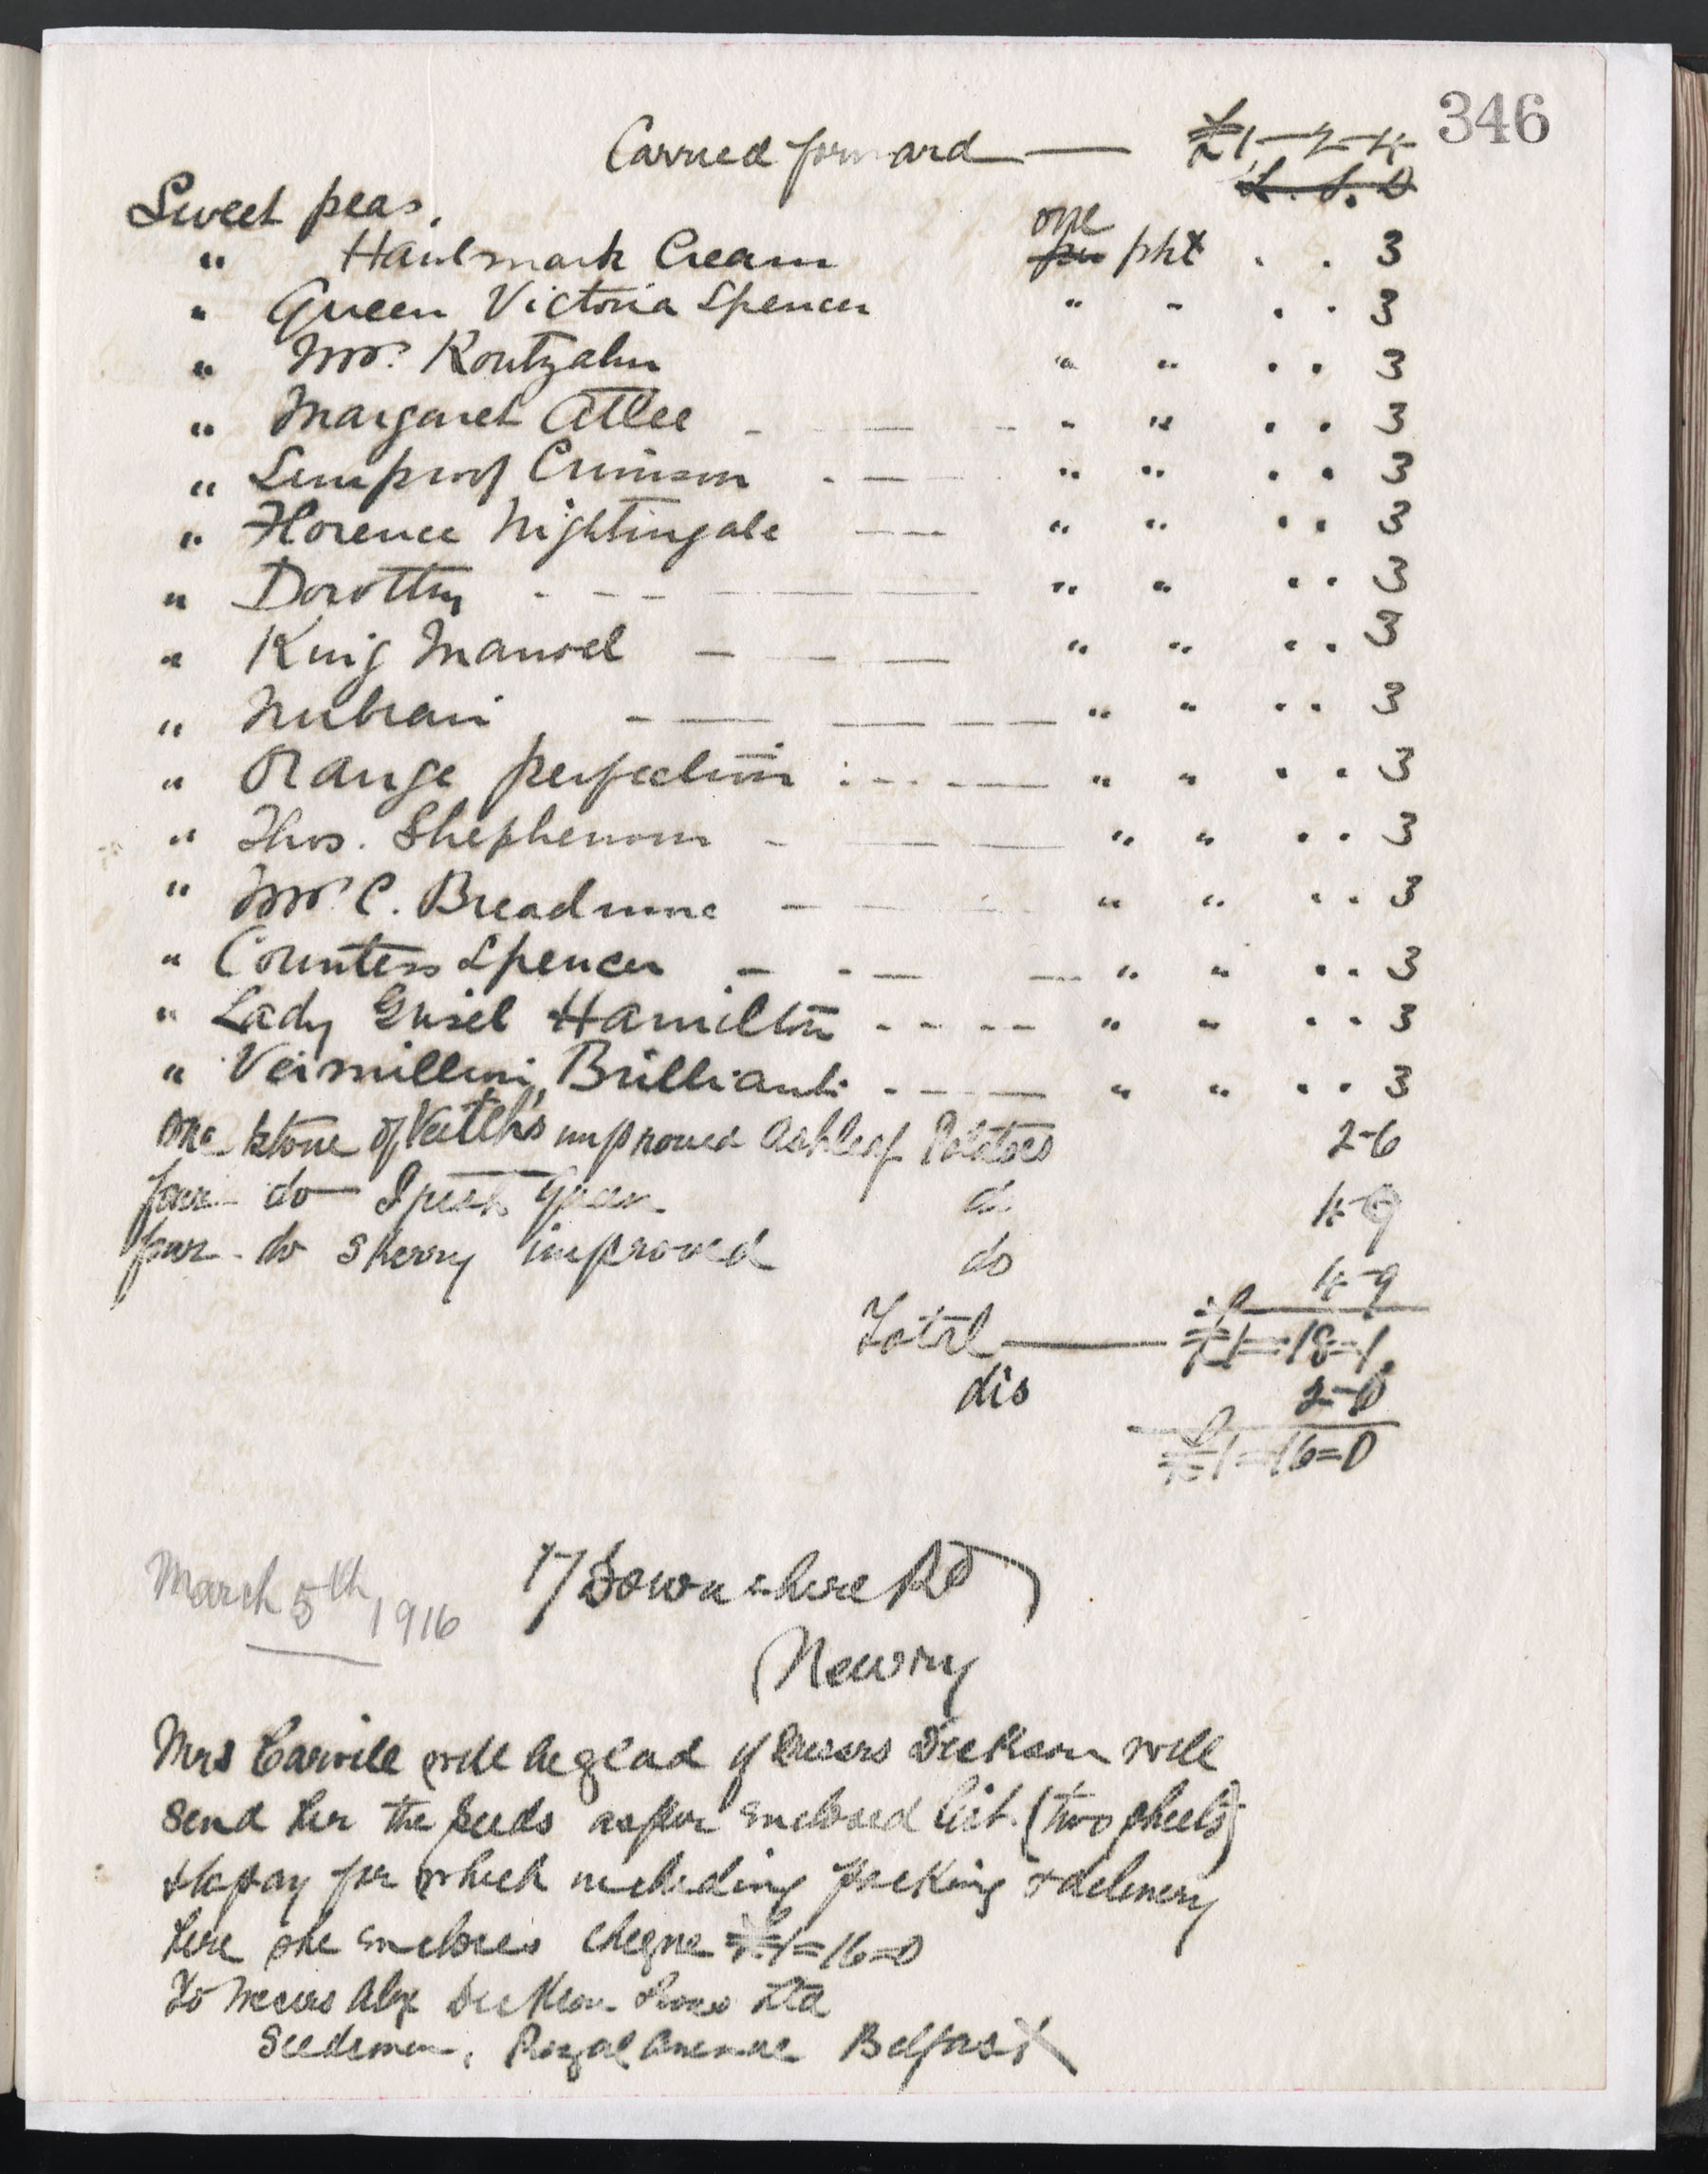 346
Carried forward — £1-2-4
£. S. D
Sweet peas.
one
" Hawlmark Cream per pkt . . 3
" Queen Victoria Spencer " " . . 3
" Mrs. Routzahn " " . . 3
" Margaret Atlee - — - " " . . 3
" Sunproof Crimson - — " " . . 3
" Florence Nightingale - — " " . . 3
" Dorothy - - - — " " . . 3
" King Manoel — - — " " . . 3
" Nubian - — — — " " . . 3
" Orange perfection : - - — " " . . 3
" Thos. Stephenson - — — " " . . 3
" Mrs C. Breadmore - — " " . . 3
" Countess Spencer - - — — " " . . 3
" Lady Grisel Hamilton - - - - " " . . 3
" Vermillion Brilliant - - — " " . . 3
one stone of Veitch's improved Ashleaf Potatoes 2-6
four do Irish Queen do 4-9
four do Sherry improved do 4-9
Total — £1=18=1
dis 2-
£1=16=0
March 5th 1916
17 Downshire Rd
Newry
Mrs Carvill will be glad if Messrs Dickson will
send her the seeds as per enclosed list (two sheets)
to pay for which including packing & delivery
here she encloses cheque £1=16=0
To Messrs Alex Dickson Sons Ltd
Seedsmen, Royal Avenue Belfast